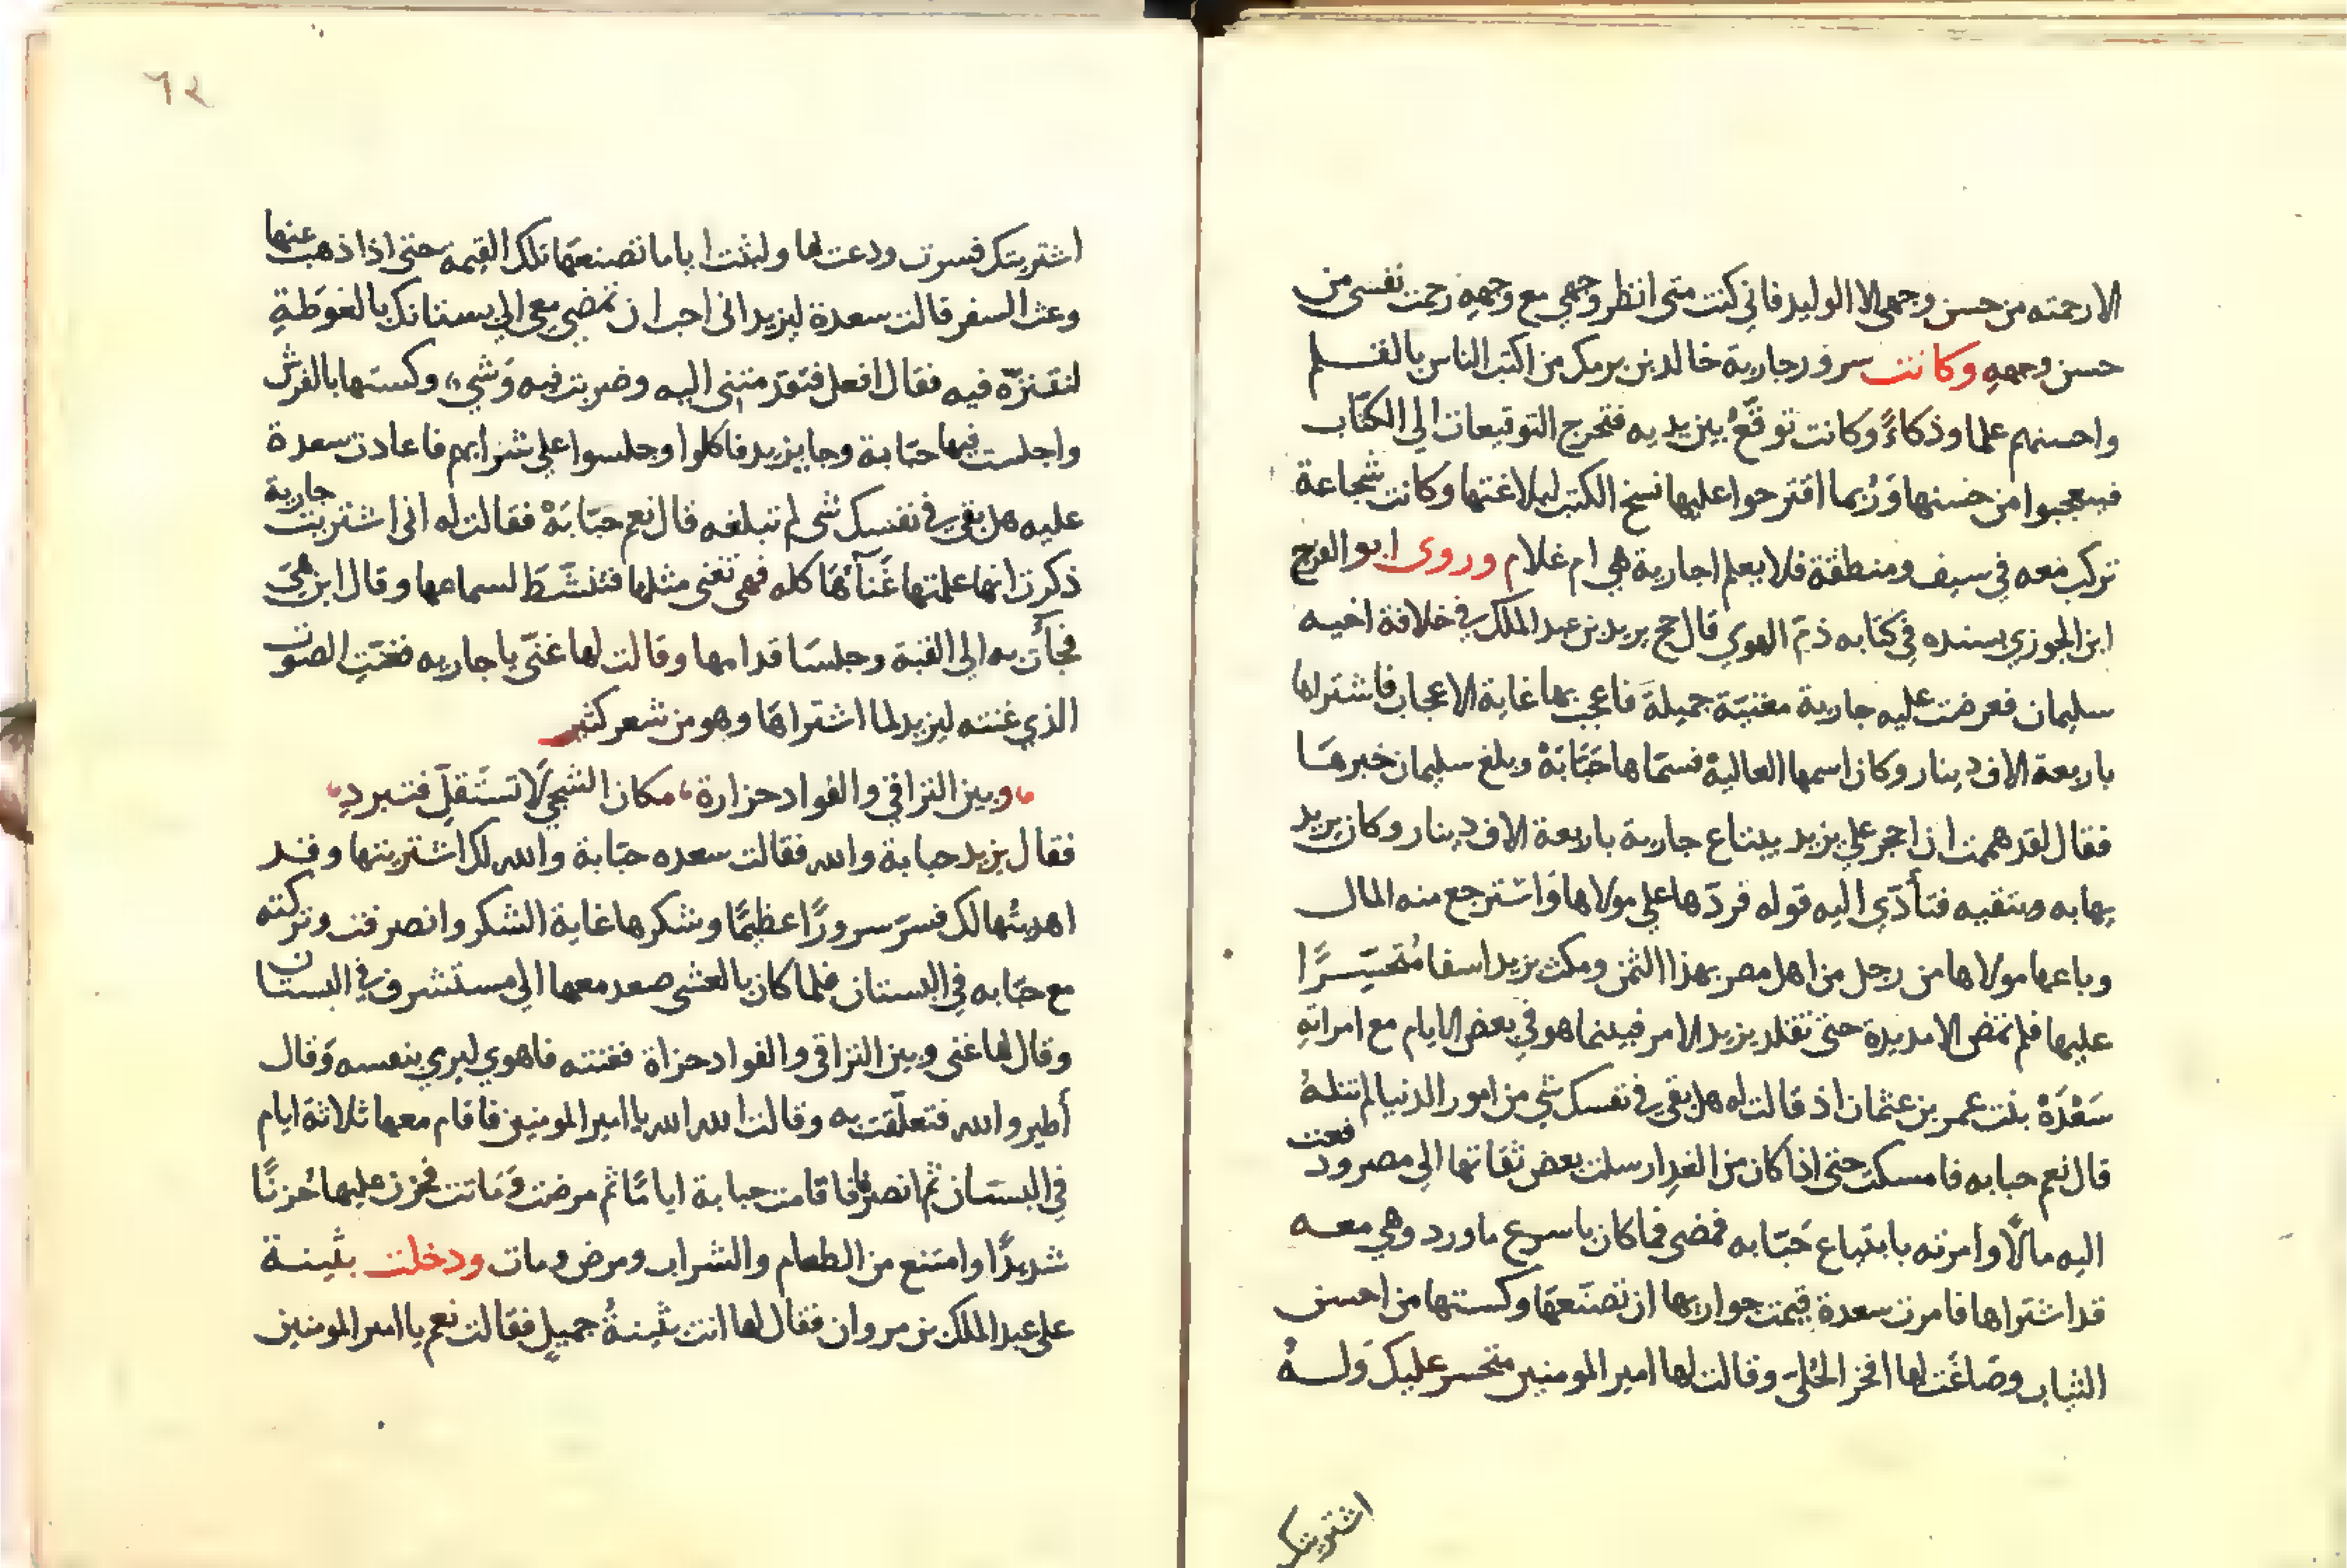 الا رحمته من حسن وجهي الا الوليد فاني كنت متى انظر وجهي مع وجهه رحمت نفسي من
حسن وجهه وكانت سرور جارية خالد بن برمك من اكتب الناس بالقلم
واحسنهم علما وذكاءً وكانت توقّعُ بين يديه فتخرج التوقيعات الي الكتّاب
فيعجبوا من حسنها وَرُبما اقترحوا عليها نسخ الكتب لبلاغتها وكانت شجاعة
تركب معه في سيف ومنطقة فلا يعلم اجارية هي ام غلام وروى ابو الفرج
ابن الجوزي بسنده في كتابه ذمّ الهوي قال حج يزيد بن عبد الملك في خلافة اخيه
سليمان فعرضت عليه جارية مغنيّة جميلة فاعجب بها غاية الاعجاب فاشتراها
باربعة الاف دينار وكان اسمها العالية فسمّاها حَبَّابَةْ وبلغ سليمان خبرها
فقال لقد هممت ان احجر علي يزيد يبتاع جارية باربعة الاف دينار وكان يزيد
يهابه ويتقيه فتأدّي اليه قوله فردّها علي مولاها وَاسْترجع منه المال
وباعها مولاها من رجل من اهل مصر بهذا الثمن ومكث يزيد اسفا مُتحسّرًا
عليها فلم تمض الا مديدة حتى تقلد يزيد الامر فبينما هو في بعض الايام مع امراته
سَعْدَةْ بنت عمر بن عثمان اذ قالت له هل بقي في نفسك شي من امور الدنيا لم تنلهُ
قال نعم حبابه فامسكت حتى اذا كان من الغدِ ارسلت بعض ثقاتها الي مصر ودفعت
اليه مالًا وامرته بابتياع حَبّابه فمضي فما كان باسرع ما ورد وهي معه
قد اشتراها فامرت سعدة قيمت جواريها ان تصنّعها وكستها من احسن
الثياب وصَاغَت لها افخر الحُليّ وقالت لها امير المومنين متحسر عليك وَلهُ
اشتريتك
٦٢
اشتريتك فسرت ودعت لها ولبثت اياما تصنعها تلك القيمه حتى اذا ذهب عنها
وعث السفر قالت سعدة ليزيد اني احب ان تمضي معي الي بستانك بالغوطَةِ
لنتنزّه فيه فقال افعل فتقدمتني اليه وضربت فيه وَشي وكستها بالفرش
واجلست فيها حبّابة وجا يزيد فاكلوا وجلسوا علي شرابهم فاعادت سعدة
عليه هل بقي في نفسك شي لم تبلغه قال نعم حبّابَةْ فقالت له اني اشتريت جارية
ذكرت انها علمتها غَنآئها كله فهي تغني مثلها فتنشّط لسماعها وقال اين هيَ
فجأت به الي القبة وجلسَا قدامها وقالت لها غنّي يا جاريه فغنّت الصوت
الذي غنته ليزيد لما اشتراها وهو من شعر كثير
وبين التراقي والفواد حزارة مكان الشجي لَا تسْتَقلّ فتبردِ
فقال يزيد حبابة والله فقالت سعده حبّابة والله لك اشتريتها وقد
اهديتُها لك فسرّ سرورًا عظيمًا وشكرها غاية الشكر وانصرفت وتركته
مع حبّابه في البستان فلما كان بالعشي صعد معها الي مستشرف في البستان
وقال لها غني وبين التراقي والفواد حزاة فغنته فاهوي ليرمي بنفسه وَقال
أطير والله فتعلّقت به وقالت الله الله يا امير المومنين فاقام معها ثلاثة ايام
في البستان ثم انصرفا فاقامت حبابة ايامًا ثم مرضت وَماتت فحزن عليها حُزنًا
شديدًا وامتنع من الطعام والشراب ومرض ومات ودخلت بثينة
علي عبد الملك بن مروان فقال لها انت بثينةُ جميلٍ فقالت نعم يا امير المومنين